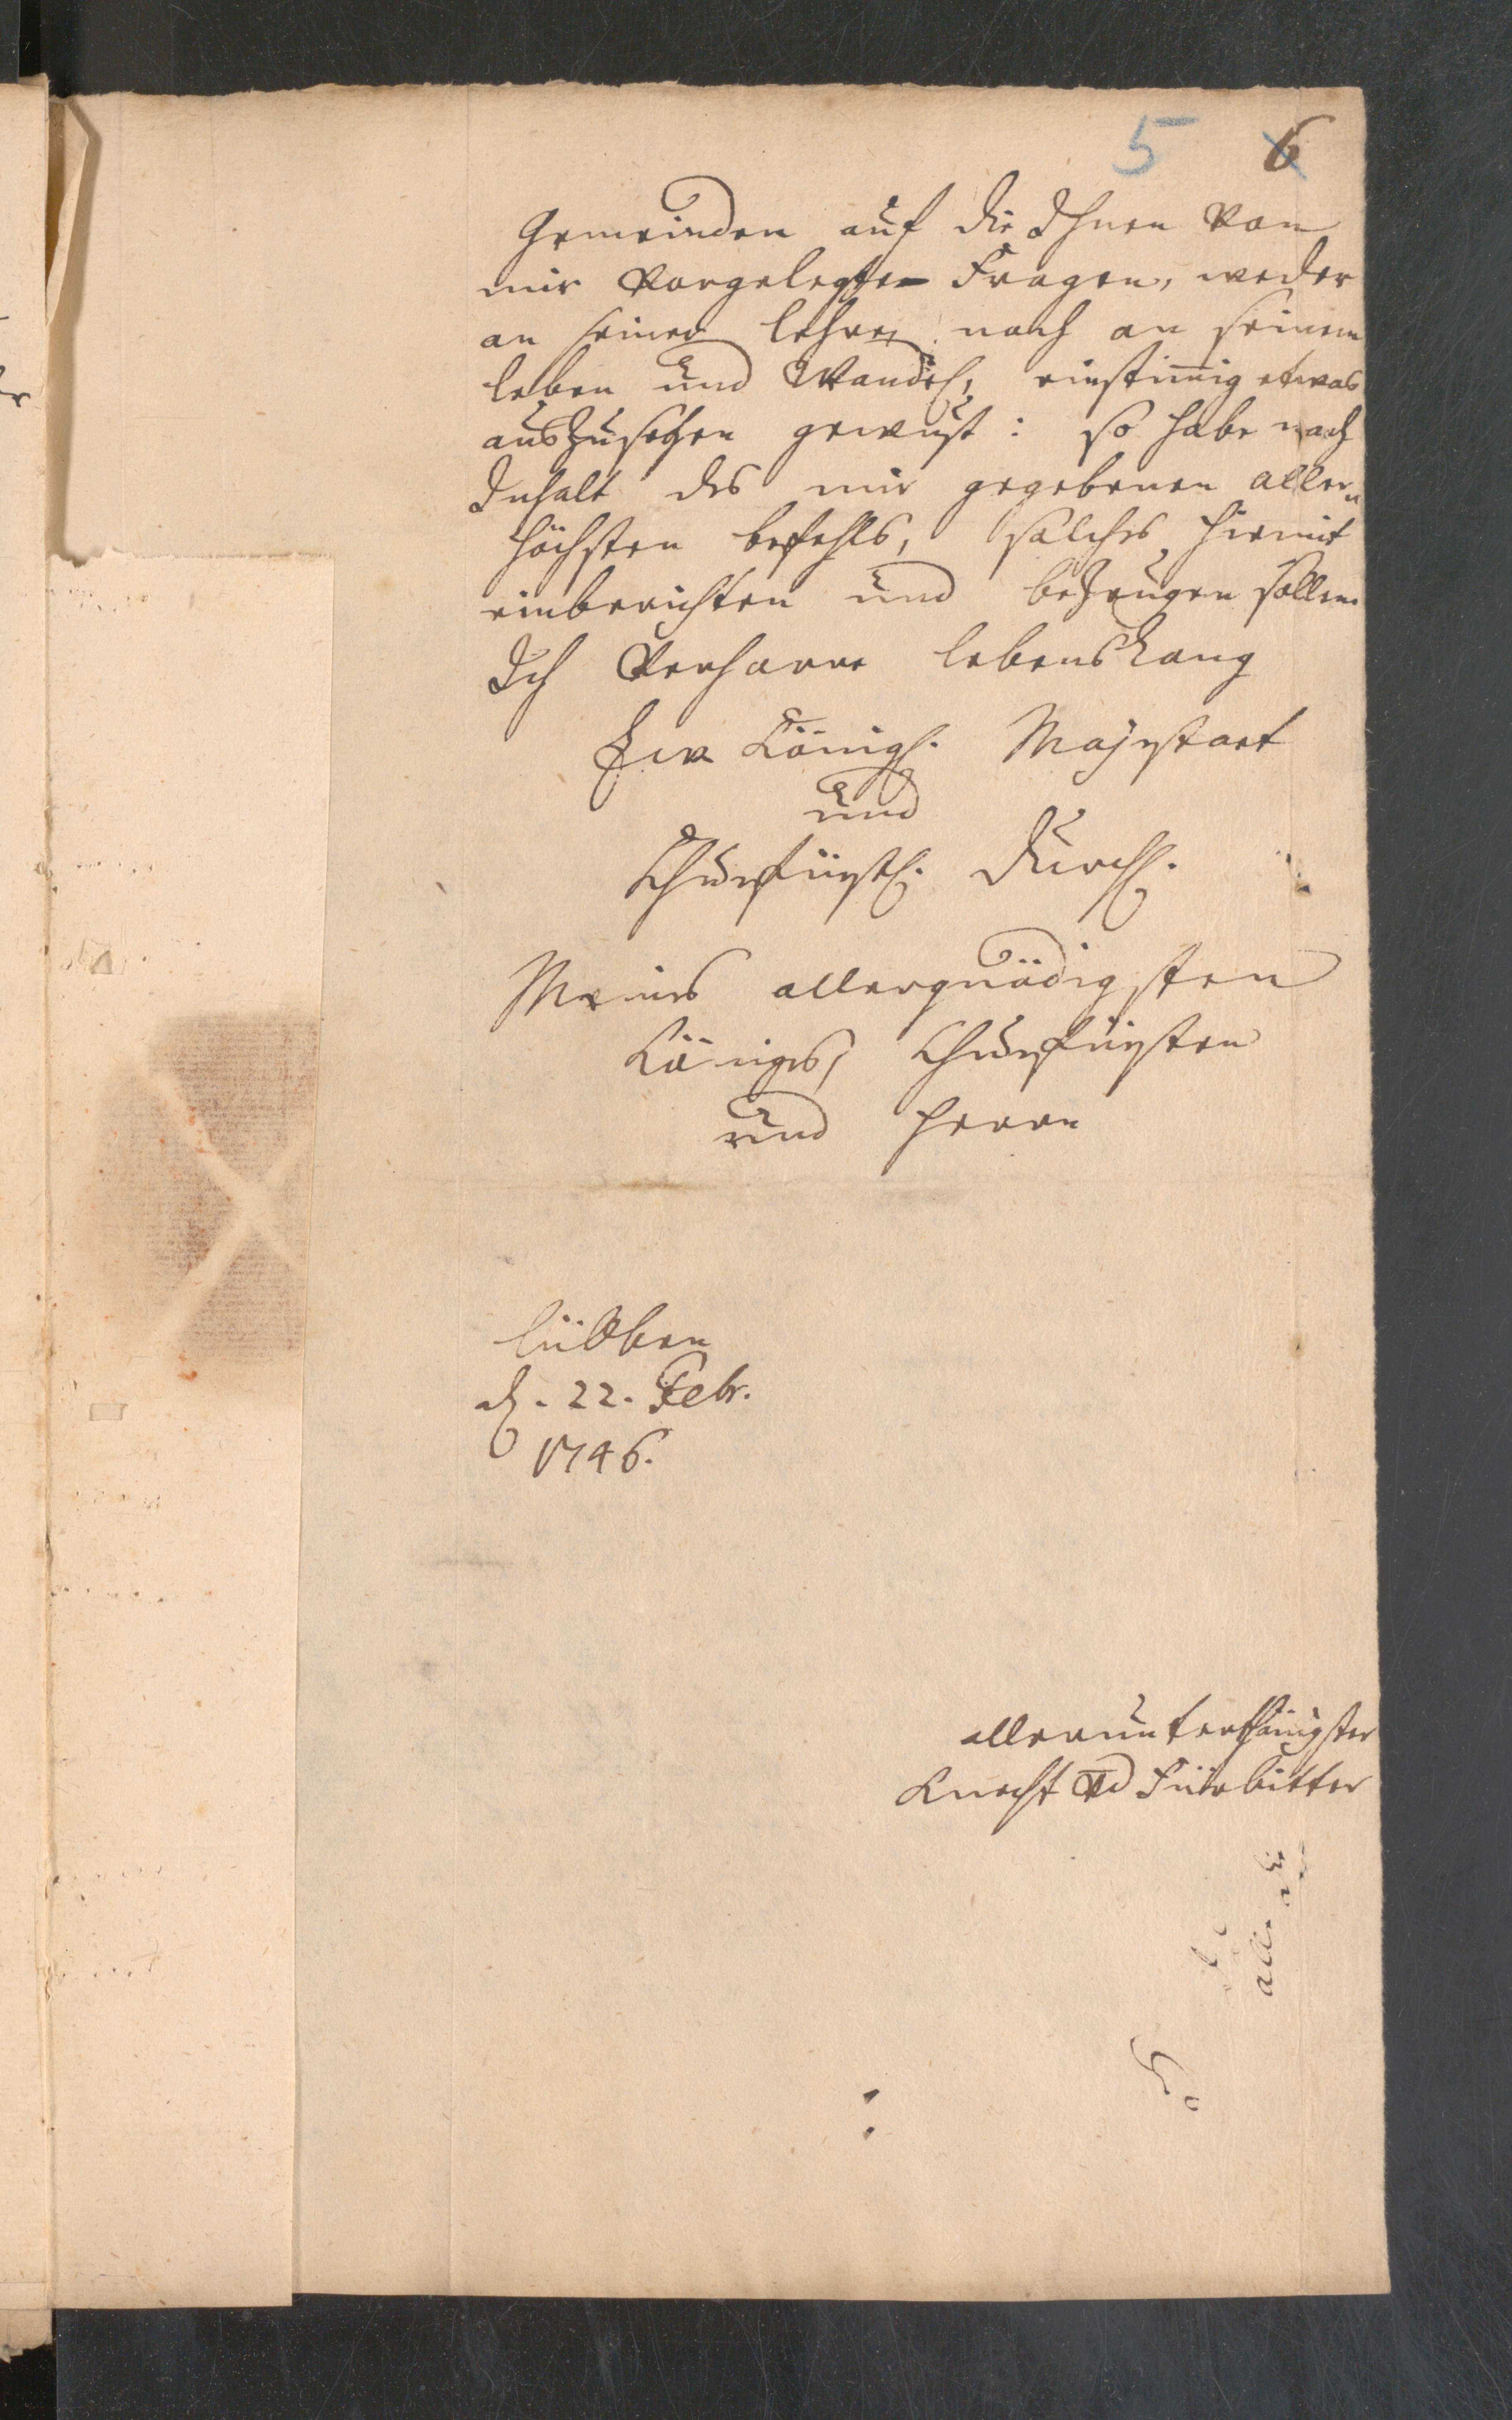 5 6
Gemeinden auf die Ihnen von
mir vorgelegten Fragen, weder
an seiner Lehre, noch an seinem
Leben und Wandel, einstimig etwas
auszusetzen gewust: so habe nach
Inhalt des mir gegebenen aller„
höchsten befehls, solches hiermit
einberichten und bezeugen sollen.
Ich verharre lebenslang
Ew Königl. Majestaet
und
Churfürstl. Durchl.
Meines allergnädigsten
Königs, Churfürsten
und Herrn
Lübben
d. 22. Febr.
1746.
allerunterthänigster
Knecht vd Fürbitter